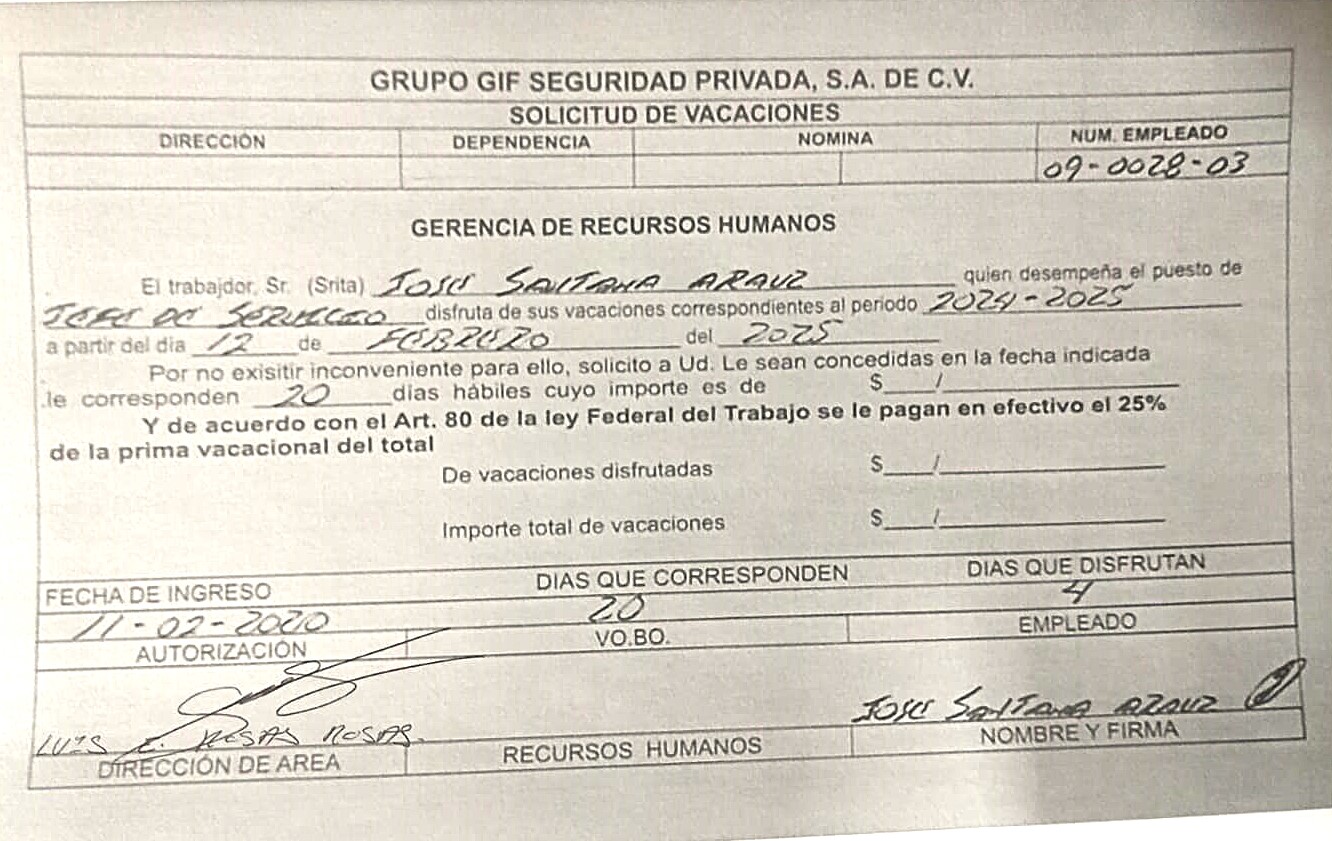 GRUPO GIF SEGURIDAD PRIVADA, S.A. DE C.V.
SOLICITUD DE VACACIONES
DIRECCIÓN DEPENDENCIA NOMINA NUM. EMPLEADO
09-0028-03
GERENCIA DE RECURSOS HUMANOS
El trabajdor, Sr. (Srita) JOSE SANTANA ARAUZ quien desempeña el puesto de
JEFE DE SERVICIO disfruta de sus vacaciones correspondientes al periodo 2024-2025
a partir del dia 12 de FEBRERO del 2025
Por no exisitir inconveniente para ello, solicito a Ud. Le sean concedidas en la fecha indicada
le corresponden 20 días hábiles cuyo importe es de $ /
Y de acuerdo con el Art. 80 de la ley Federal del Trabajo se le pagan en efectivo el 25%
de la prima vacacional del total
De vacaciones disfrutadas $ /
Importe total de vacaciones $ /
FECHA DE INGRESO DIAS QUE CORRESPONDEN DIAS QUE DISFRUTAN
11-02-2020 20 4
AUTORIZACIÓN VO.BO. EMPLEADO
LUIS E. ROSAS ROSAS. JOSE SANTANA ARAUZ
DIRECCIÓN DE AREA RECURSOS HUMANOS NOMBRE Y FIRMA